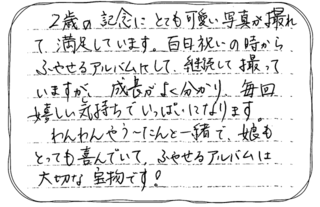 2歳の記念にとても可愛い写真が撮れ
て、満足しています。百日祝いの時から
ふやせるアルバムにして、継続して撮って
いますが、成長がよく分かり、毎回
嬉しい気持ちでいっぱいになります。
わんわんやう〜たんと一緒で、娘も
とっても喜んでいて、ふやせるアルバムは
大切な宝物です!